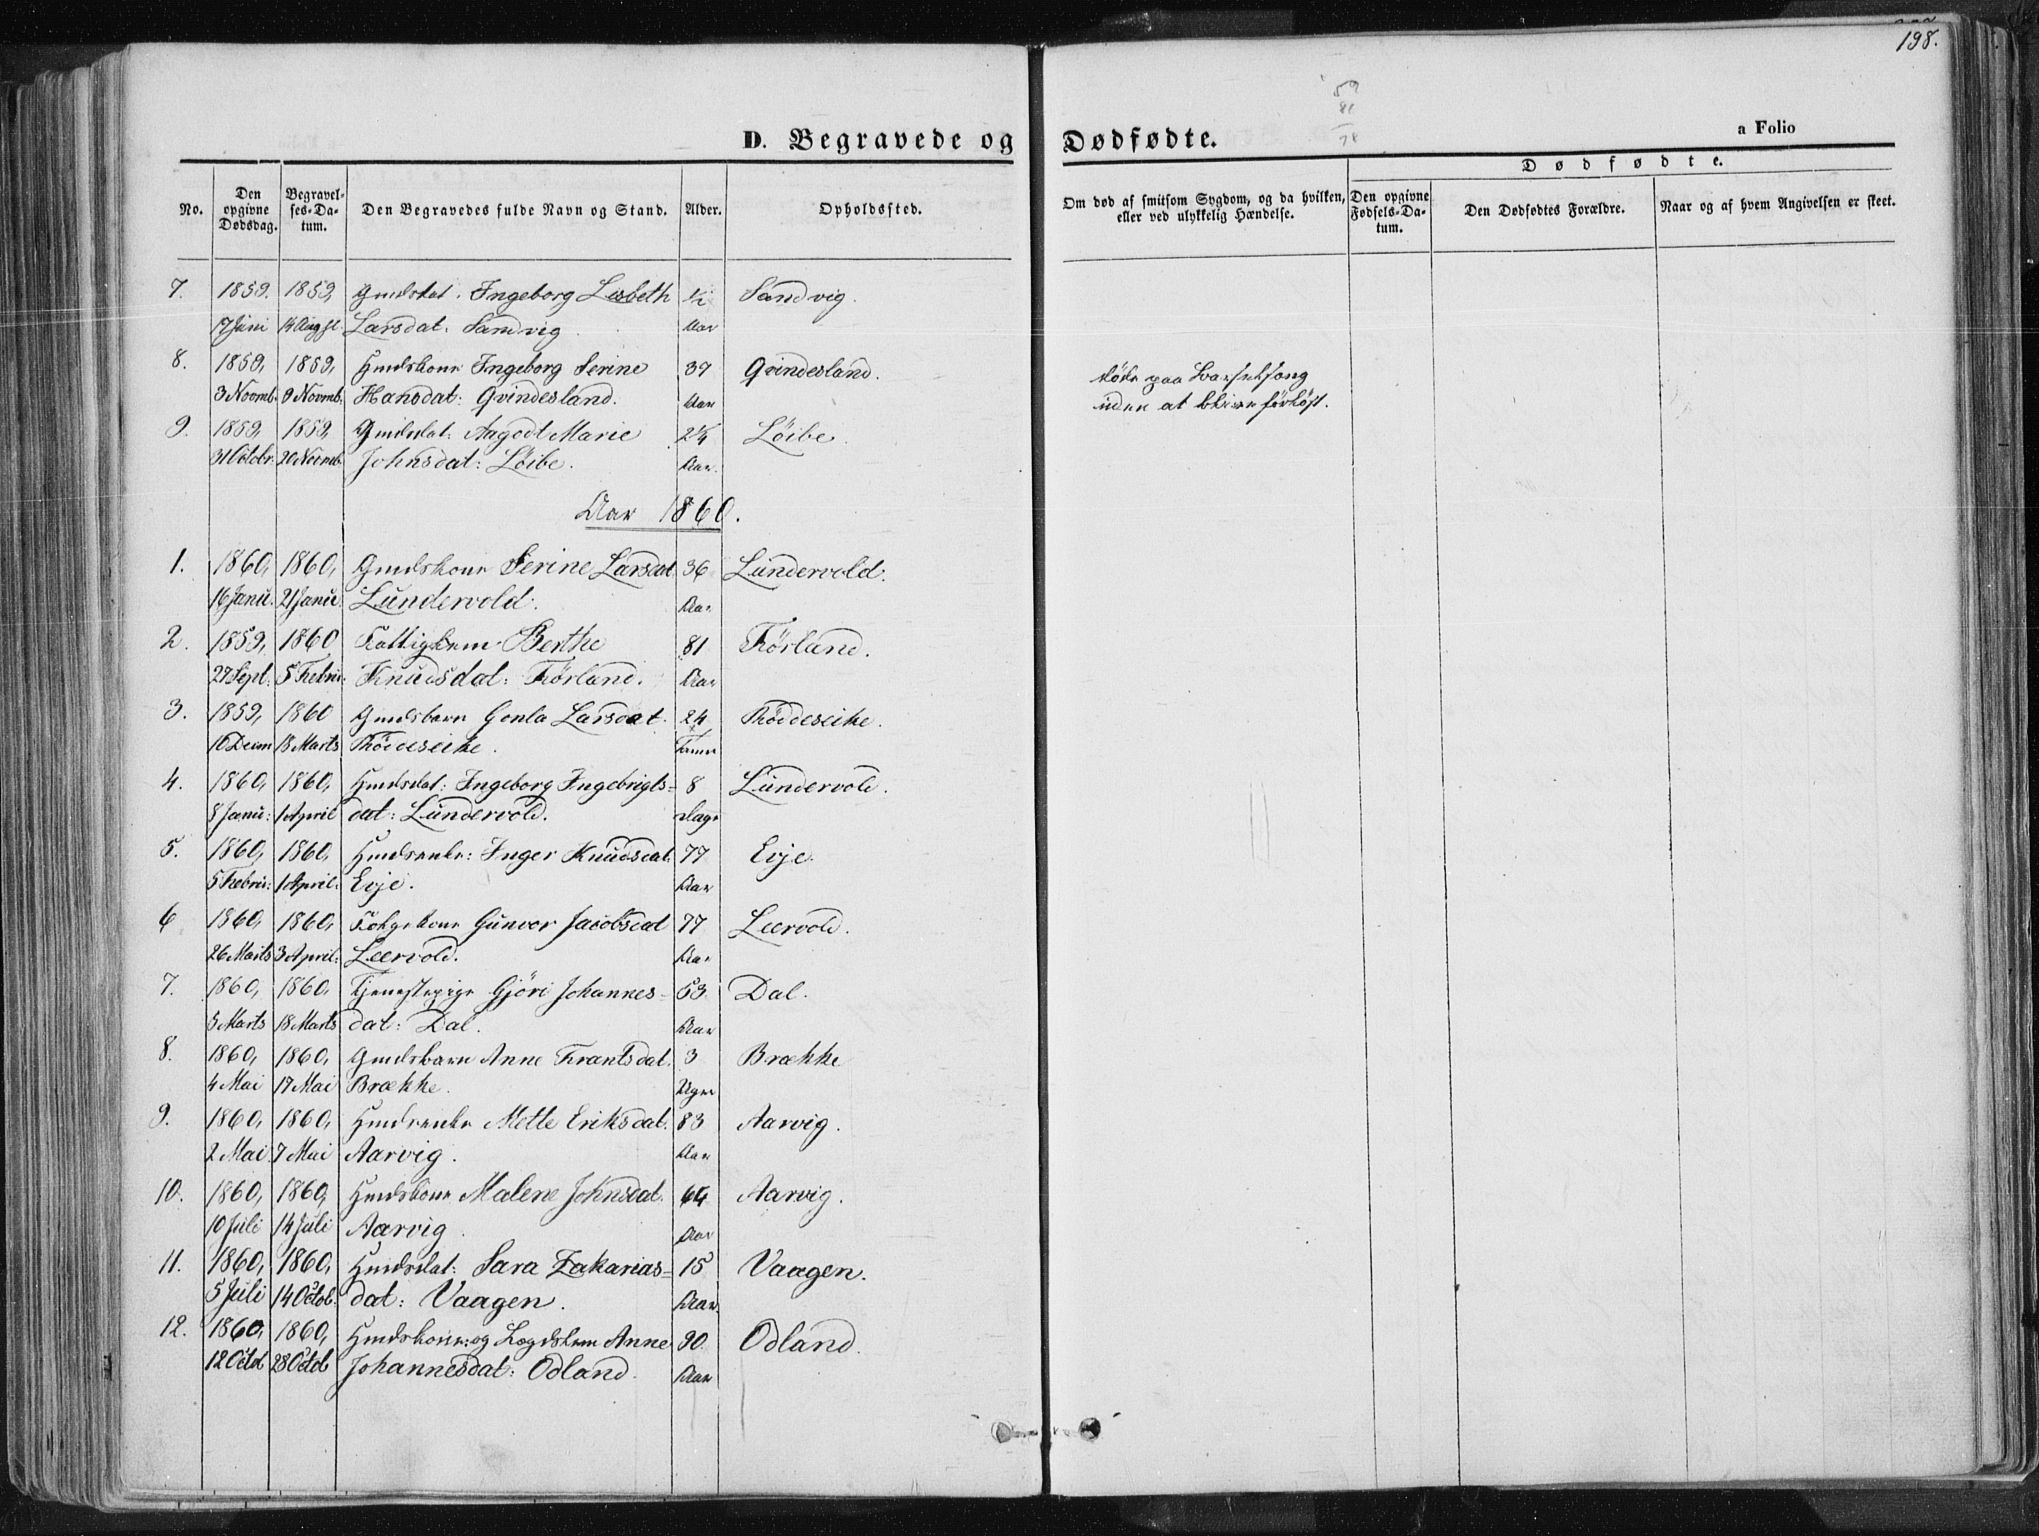 198.
59
81
78
D. Begravede og Dødfødte.
a Folio
Dødfødte.
No.
Den opgivne Dødsdag.
Begravelses-Datum.
Den Begravedes fulde Navn og Stand.
Alder.
Opholdssted.
Om død af smitsom Sygdom, og da hvilken, eller ved ulykkelig Hændelse.
Den opgivne Fødsels-Datum.
Den Dødfødtes Forældre.
Naar og af hvem Angivelsen er skeet.
7. 1859. 1859, Gmdsdat. Ingeborg Lisbeth ½ Sandvig.
17 Juni 14 Augst. Larsdat: Sandvig. Aar
8. 1859, 1859, Hmdskone Ingeborg Serine 37 Qvindesland. døde paa Barselseng
3 Novmb. 9 Novmb. Hansdat: Qvindesland. Aar uden at blive forløst.
9. 1859, 1859, Gmdsdat: Aagodt Marie 2¼ Löibe.
31 Octobr. 20 Novmb. Johnsdat: Löibe. Aar.
Aar 1860.
1. 1860, 1860, Gmdskone Serine Larsdat. 36 Lundervold.
16 Janu. 21 Janu. Lundervold. Aar
2. 1859, 1860 Fattiglem Berthe 81 Förland.
27 Sept. 5 Febru: Knudsdat: Förland. Aar
3. 1859, 1860 Gmdsbarn Gonla Larsdat. 24 Röddeseike.
10 Decm 18 Marts Röddeseike. Timer
4. 1860, 1860, Hmdsdat: Ingeborg Ingebrigts- 8 Lundervold.
8 Janu: 1 April dat: Lundervold. Dage
5. 1860, 1860, Hmdsenke: Inger Knudsdat. 77 Evje.
5 Febru: 1 April. Evje. Aar
6 1860, 1860, Folgekone Gunvor Jacobsdat 77 Leervold.
26 Marts 3 April: Leervold. Aar
7. 1860, 1860, Tjenestepige Gjöri Johannes- 53 Dal.
3 Marts 18 Marts dat: Dal. Aar
8. 1860, 1860, Gmdsbarn Anne Frantsdat. 3 Brække
4 Mai 17 Mai Brække. Uger
9. 1860, 1860, Hmdsenke Mette Eriksdat. 83 Aarvig.
2 Mai. 7 Mai Aarvig. Aar
10. 1860, 1860, Hmdskone Malene Johnsdat. 64 Aarvig.
10 Juli 14 Juli Aarvig. Aar
11. 1860, 1860, Hmdsdat: Sara Zakarias- 15 Vaagen.
5 Juli 14 Octob. dat: Vaagen. Aar.
12. 1860, 1860, Hmdskone: og Lægdslem Anne 90. Odland.
12 Octob 28 Octob Johannesdat: Odland. Aar